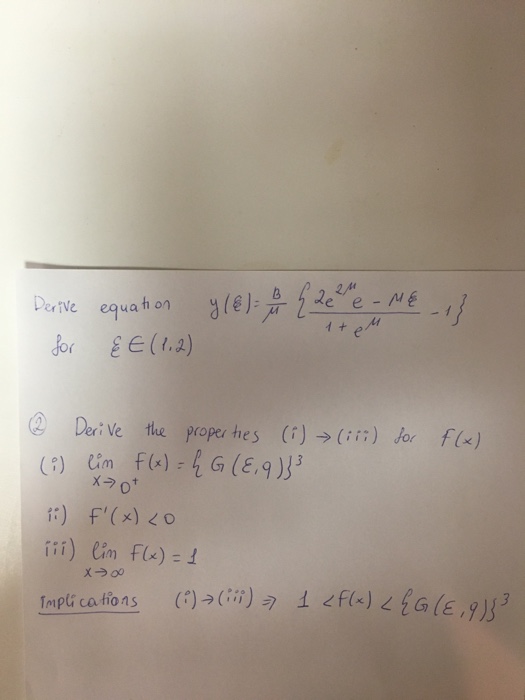 Derive equation y(ξ) = B/μ { 2e^{2μ} e - μξ / 1 + e^μ - 1 }
for ξ ∈ (1.2)
② Derive the properties (i) → (iii) for f(x)
(i) lim x→0⁺ f(x) = { G(ε,q) }³
ii) f'(x) < 0
iii) lim x→∞ f(x) = 1
Implications (i) → (iii) ⇒ 1 < f(x) < { G(ε,q) }³